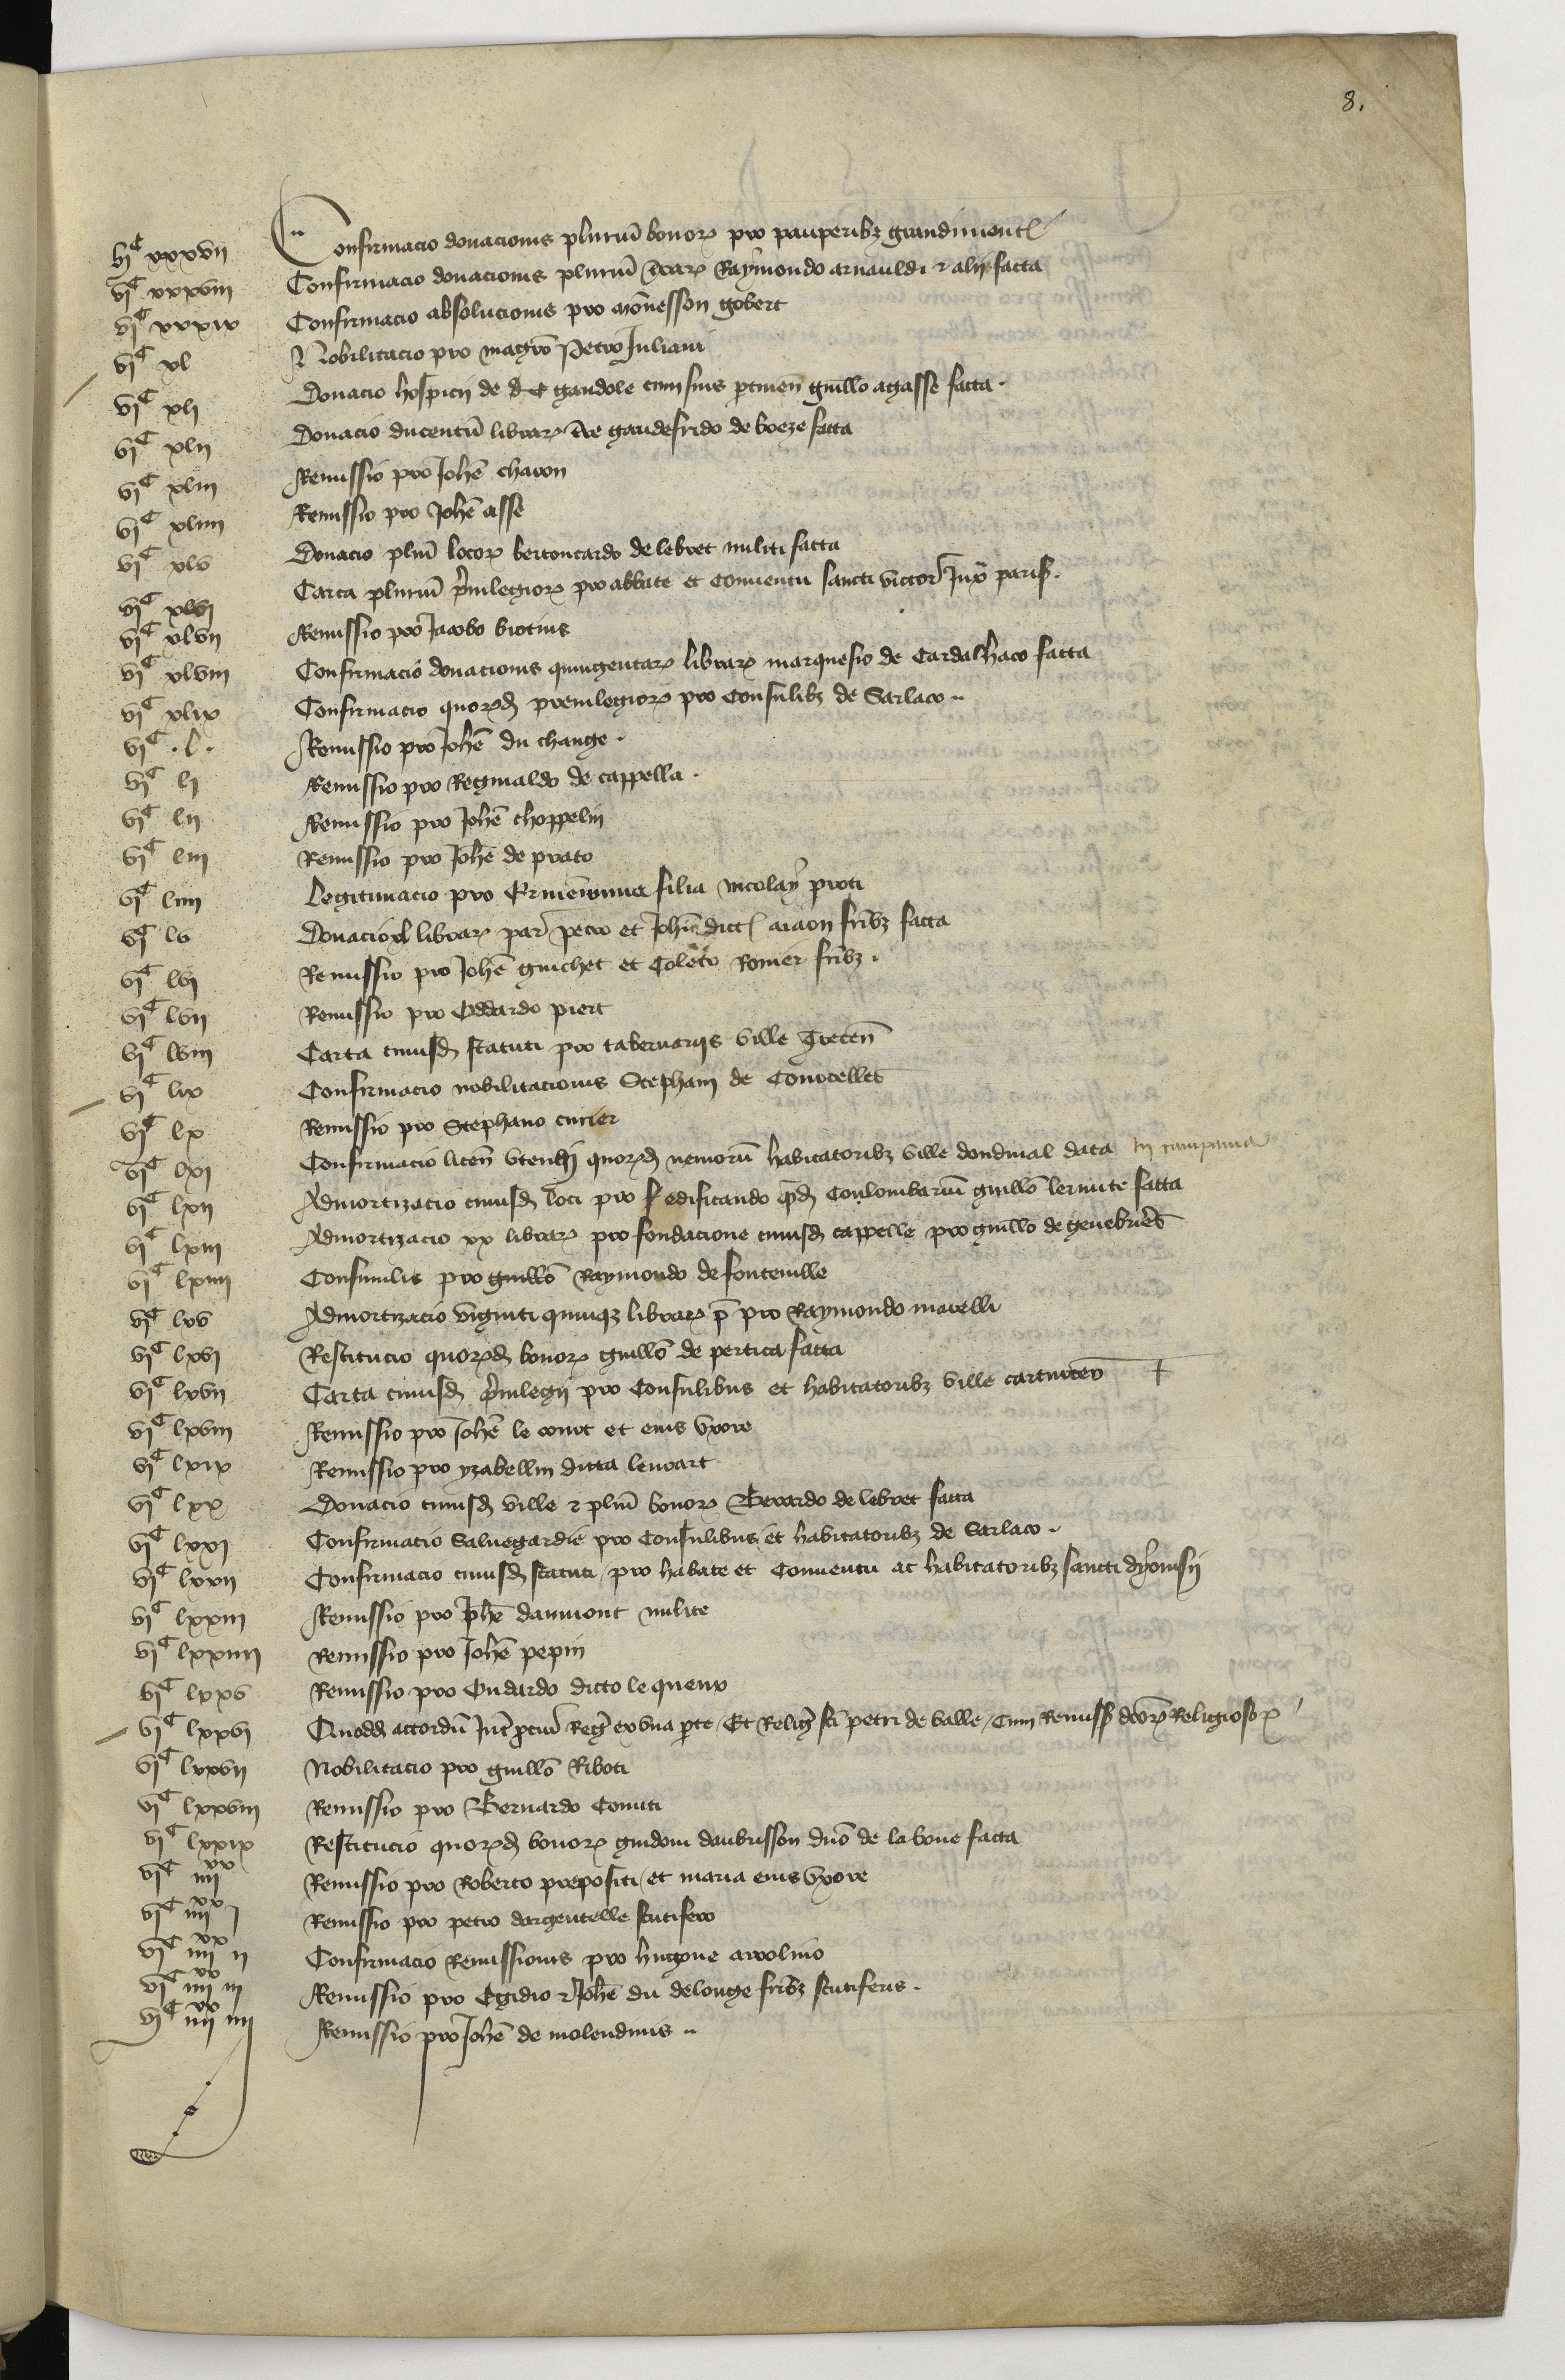 8.
vi^C xxxvii Confirmacio donacionis plurium bonor[um] pro pauperib[us] grandimont[is]
vi^C xxxviii Confirmacio donacionis plurium Raymondo arnauldi & alii facta
vi^C xxxix Confirmacio absolucionis pro gobert
vi^C xl Nobilitacio pro mag[ist]ro Petro Juliani
vi^C xli Donacio hospicii de gandole cum suis p[er]tinen̄ guill[erm]o agasse facta .
vi^C xlii Donacio ducentū librar[um] gaudefrido de boeze facta
vi^C xliii Remissio pro Joh[ann]e charon
vi^C xliiii Remissio pro Joh[ann]e asse
vi^C xlv Donacio pl[ur]iū locor[um] bertoucardo de lebret militi facta
vi^C xlvi Carta plurium p[ri]uilegior[um] pro abbate et conuentu sancti victor[is] Juxᵃ paris[ius] .
vi^C xlvii Remissio pro Jacobo
vi^C xlviii Confirmacio donacionis quingentar[um] librar[um] marquesio de Cardalhaco facta
vi^C xlix Confirmacio quor[un]d[am] preuilegior[um] pro Consulib[us] de Sarlaco
vi^C .l. Remissio pro Joh[ann]e du change .
vi^C li Remissio pro Reginaldo de cappella .
vi^C lii Remissio pro Joh[ann]e choppelin
vi^C liii Remissio pro Joh[ann]e de prato
vi^C liiii Legitimacio pro filia Nicolay proti
vi^C lv Donacio xl librar[um] par[isiensium] Petro et Joh[ann]i dict[is] fr[atr]ib[us] facta
vi^C lvi Remissio pro Joh[ann]e guichet et Coleto Romier fr[atr]ib[us] .
vi^C lvii Remissio pro Oddardo piert
vi^C lviii Carta cuiusd[am] statuti pro tabernariis ville Trecen̄
vi^C lix Confirmacio nobilitacionis Stephani de Courcelles
vi^C lx Remissio pro Stephano curier
vi^C lxi Confirmacio licen̄ vtendi quor[un]d[am] nemorū habitatorib[us] ville dondinal data In campania
vi^C lxii Admortizacio cuiusd[am] loci pro edificando q[uo]dd[am] Coulombariū guill[erm]o lermite facta
vi^C lxiii Admortizacio xx librar[um] pro fondacione cuiusd[am] cappelle pro guill[erm]o de genebrieres
vi^C lxiiii Consimilis pro guill[erm]o Raymondo de fonteuille
vi^C lxv Admortizacio viginti quinq[ue] librar[um] p̄ pro Raymondo marelli
vi^C lxvi Restitucio quor[un]d[am] bonor[um] guill[erm]o de pertica facta
vi^C lxvii Carta cuiusd[am] p[ri]uilegii pro Consulibus et habitatorib[us] ville carturcen̄ +
vi^C lxviii Remissio pro Joh[ann]e le conut et eius vxore
vi^C lxix Remissio pro yzabelli[n] dicta leuvart
vi^C lxx Donacio cuiusd[am] ville & pl[ur]iū bonor[um] Berardo de lebret facta
vi^C lxxi Confirmacio Saluegardie pro Consulibus et habitatorib[us] de Sarlaco .
vi^C lxxii Confirmacio cuiusd[am] statuti pro habate et Conuentu ac habitatorib[us] sancti dyonisii
vi^C lxxiii Remissio pro Joh[ann]e daumont milite
vi^C lxxiiii Remissio pro Joh[ann]e pepin
vi^C lxxv Remissio pro Oudardo dicto le queux
vi^C lxxvi Quodd[am] accordū Int[er] p[ro]cur[atorem] Reg[ium] ex vna p[ar]te / Et Relig[iosos] s[anc]ti petri de valle / Cum Remiss[ione] d[i]c[t]or[um] Religiosor[um]
vi^C lxxvii Nobilitacio pro guill[erm]o Riboti
vi^C lxxviii Remissio pro Bernardo Comiti
vi^C lxxix Restitucio quor[un]d[am] bonor[um] guidoni daubusson d[omi]no de la bone facta
vi^C iiii^xx Remissio pro Roberto prepositi / et maria eius vxore
vi^C iiii^xx i Remissio pro petro dargentelle scutifero
vi^C iiii^xx ii Confirmacio Remissionis pro hugone
vi^C iiii^xx iii Remissio pro Egidio & Joh[ann]e du delouge fr[atr]ib[us] scutiferis .
vi^C iiii^xx iiii Remissio pro Joh[ann]e de molendinis